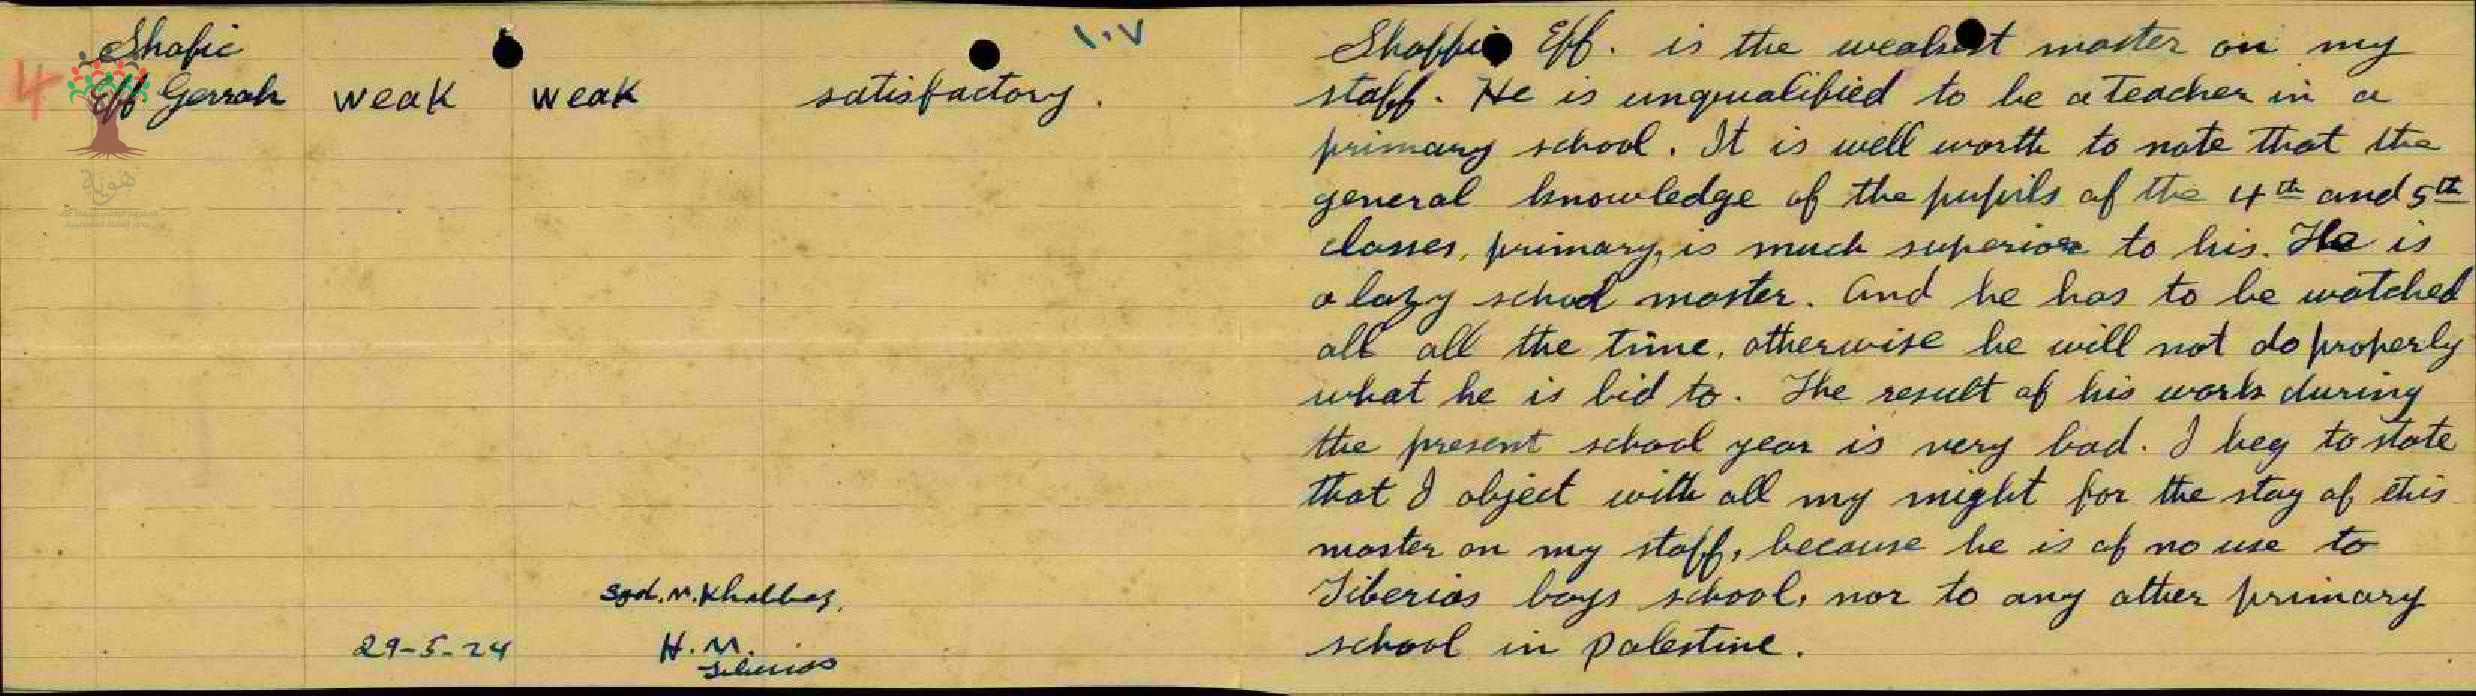 ١٠٧
4
Shafic
Eff Gerrah weak weak satisfactory.
Sgd. M. Khalbas.
29-5-24 H. M.
Tiberias
Shaffic Eff. is the weakest master on my
staff. He is unqualified to be a teacher in a
primary school. It is well worth to note that the
general knowledge of the pupils of the 4th and 5th
classes, primary, is much superior to his. He is
a lazy school master. And he has to be watched
all all the time, otherwise he will not do properly
what he is bid to. The result of his work during
the present school year is very bad. I beg to state
that I object with all my might for the stay of this
master on my staff, because he is of no use to
Tiberias boys school, nor to any other primary
school in Palestine.
هوية